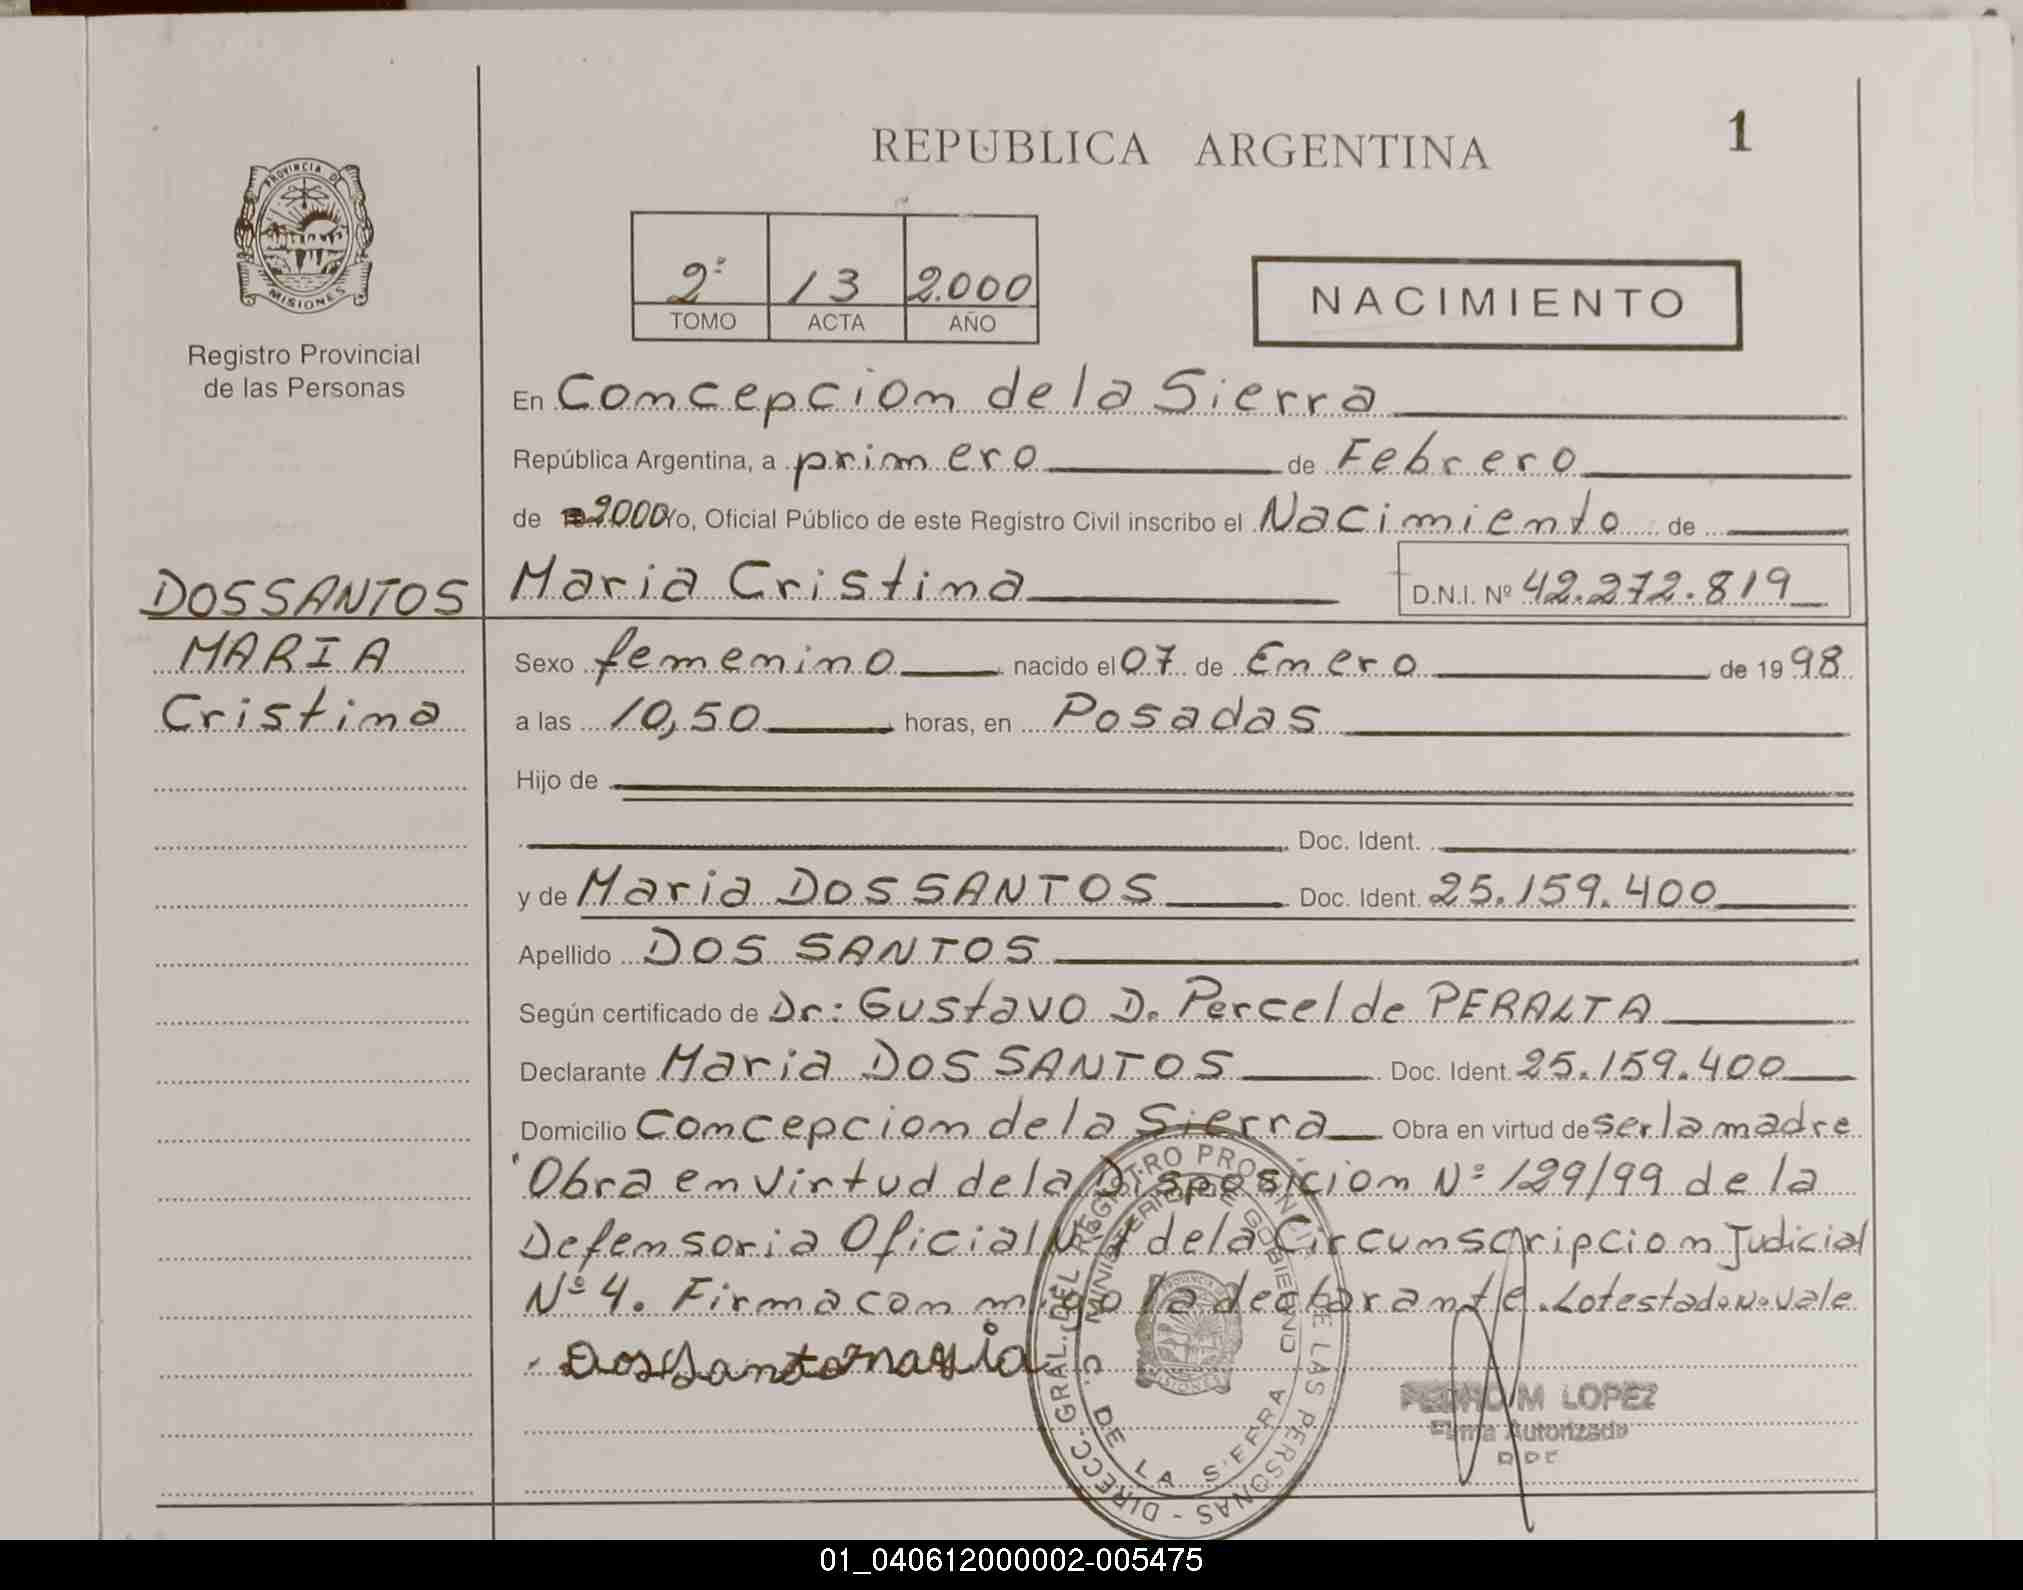 REPUBLICA ARGENTINA
1
PROVINCIA DE
MISIONES
Registro Provincial
de las Personas
2º 13 2.000
TOMO ACTA AÑO
NACIMIENTO
En Concepcion de la Sierra
República Argentina, a primero de Febrero
de 2000 Yo, Oficial Público de este Registro Civil inscribo el Nacimiento de
DOS SANTOS
MARIA
Cristina
Maria Cristina D.N.I. Nº 42.272.819
Sexo femenino nacido el 07 de Enero de 1998
a las 10,50 horas, en Posadas
Hijo de
Doc. Ident.
y de Maria DOS SANTOS Doc. Ident. 25.159.400
Apellido DOS SANTOS
Según certificado de Dr: Gustavo D. Percel de PERALTA
Declarante Maria DOS SANTOS Doc. Ident. 25.159.400
Domicilio Concepcion de la Sierra Obra en virtud de ser la madre
Obra en virtud de la Disposicion Nº 129/99 de la
Defensoria Oficial Nº 1 de la Circunscripcion Judicial
Nº 4. Firma con migo la declarante. Lo testado No Vale
Dos Santo maria
DIRECC. GRAL. DEL REGISTRO PROVINCIAL DE LAS PERSONAS
MINISTERIO DE GOBIERNO
C. DE LA SIERRA
PEDRO M LOPEZ
Firma Autorizada
01_040612000002-005475